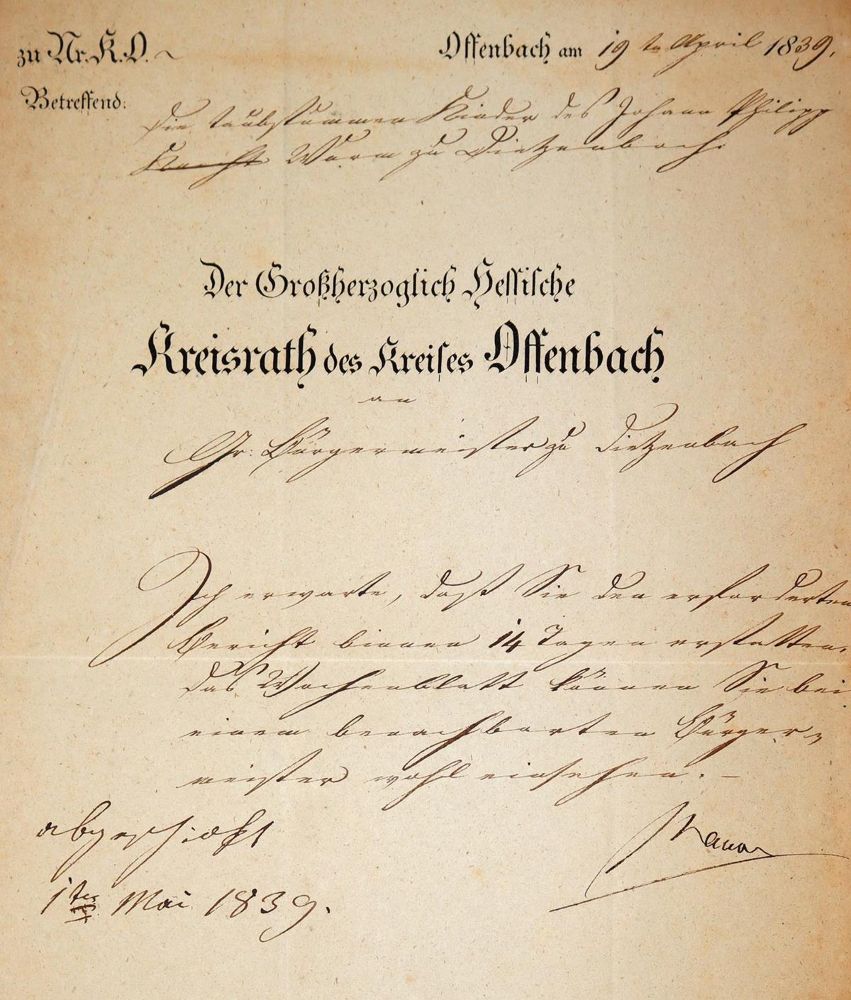 zu Nr. K. O.
Offenbach am 19 ten April 1839.
Betreffend:
Die taubstummen Kinder des Johann Philipp
Wurm zu Dietzenbach.
Der Großherzoglich Hessische
Kreisrath des Kreises Offenbach
an
Gr. Bürgermeister zu Dietzenbach
Ich erwarte, daß Sie den erforderten
Bericht binnen 14 Tagen erstatten.
Das Wochenblatt können Sie bei
einem benachbarten Bürger-
meister wohl einsehen. –
abgeschickt
1ten Mai 1839.